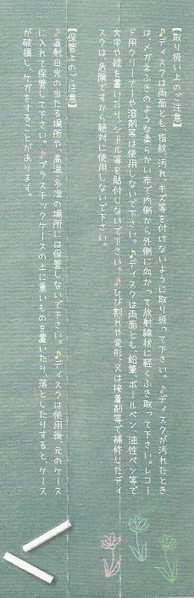 【取り扱い上のご注意】
♪ディスクは両面とも、指紋、汚れ、キズ等を付けないように取り扱って下さい。♪ディスクが汚れたとき
は、メガネふきのような柔らかい布で内側から外側に向かって放射線状に軽くふき取って下さい。レコー
ド用クリーナーや溶剤等は使用しないで下さい。♪ディスクは両面とも、鉛筆、ボールペン、油性ペン等で
文字や絵を書いたり、シール等を貼付しないで下さい。♪ひび割れや変形、又は接着剤等で補修したディ
スクは、危険ですから絶対に使用しないで下さい。
【保管上のご注意】
♪直射日光の当たる場所や、高温・多湿の場所には保管しないで下さい。♪ディスクは使用後、元のケース
に入れて保管して下さい。♪プラスチックケースの上に重いものを置いたり、落としたりすると、ケース
が破損し、ケガをすることがあります。